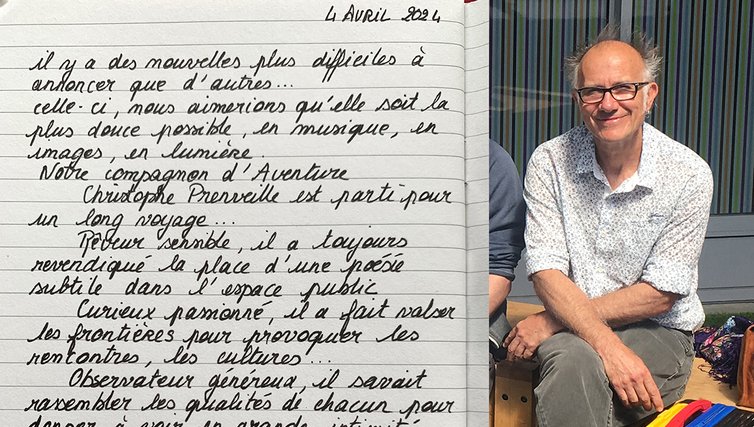 4 AVRIL 2024
il y a des nouvelles plus difficiles à
annoncer que d'autres...
celle-ci, nous aimerions qu'elle soit la
plus douce possible, en musique, en
images, en lumière.
Notre compagnon d'Aventure
Christophe Prenveille est parti pour
un long voyage...
Rêveur sensible, il a toujours
revendiqué la place d'une poésie
subtile dans l'espace public
Curieux passionné, il a fait valser
les frontières pour provoquer les
rencontres, les cultures...
Observateur généreux, il savait
rassembler les qualités de chacun pour
donner à voir en grande intimité